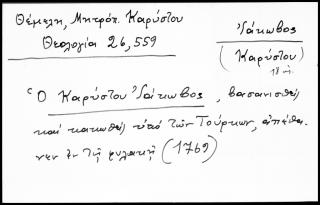 Θέμελη, Μητρόπ. Καρύστου
Θεολογία 26, 559
Ἰάκωβος
(Καρύστου)
18 αἰ.
Ὁ Καρύστου Ἰάκωβος, βασανισθεὶς
καὶ κακωθεὶς ὑπὸ τῶν Τούρκων, ἀπέθα-
νεν ἐν τῇ φυλακῇ (1769)